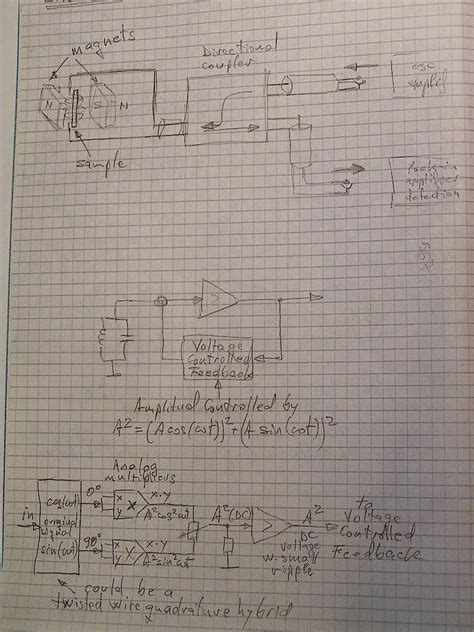 magnets
Directional
coupler
osc
N S N
sample
lock-in
amplifier
detection
Σ
Voltage
Controlled
Feedback
Amplitud Controlled by
A² = (A cos(ωt))² + (A sin(ωt))²
Analog
in
cos(ωt)
0°
x
y
x·y
A²cos²ωt
sin(ωt)
90°
x
y
x·y
A²sin²ωt
A²(DC)
A²
DC
voltage
w. small
ripple
to
Voltage
Controlled
Feedback
could be a
twisted wire quadrature hybrid